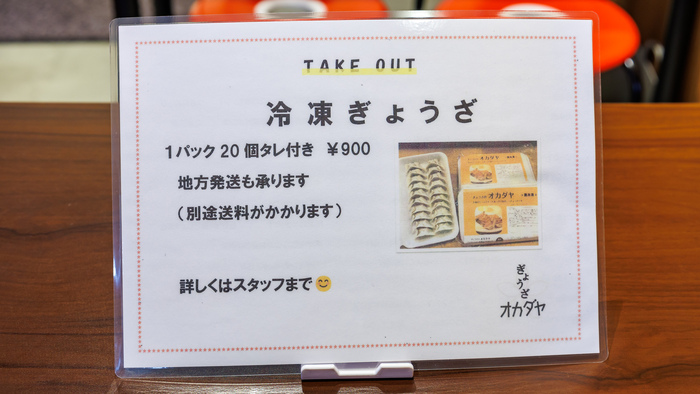 TAKE OUT
冷凍ぎょうざ
1パック20個タレ付き ¥900
地方発送も承ります
(別途送料がかかります)
詳しくはスタッフまで😊
オカダヤ
オカダヤ
ぎょうざ
オカダヤ